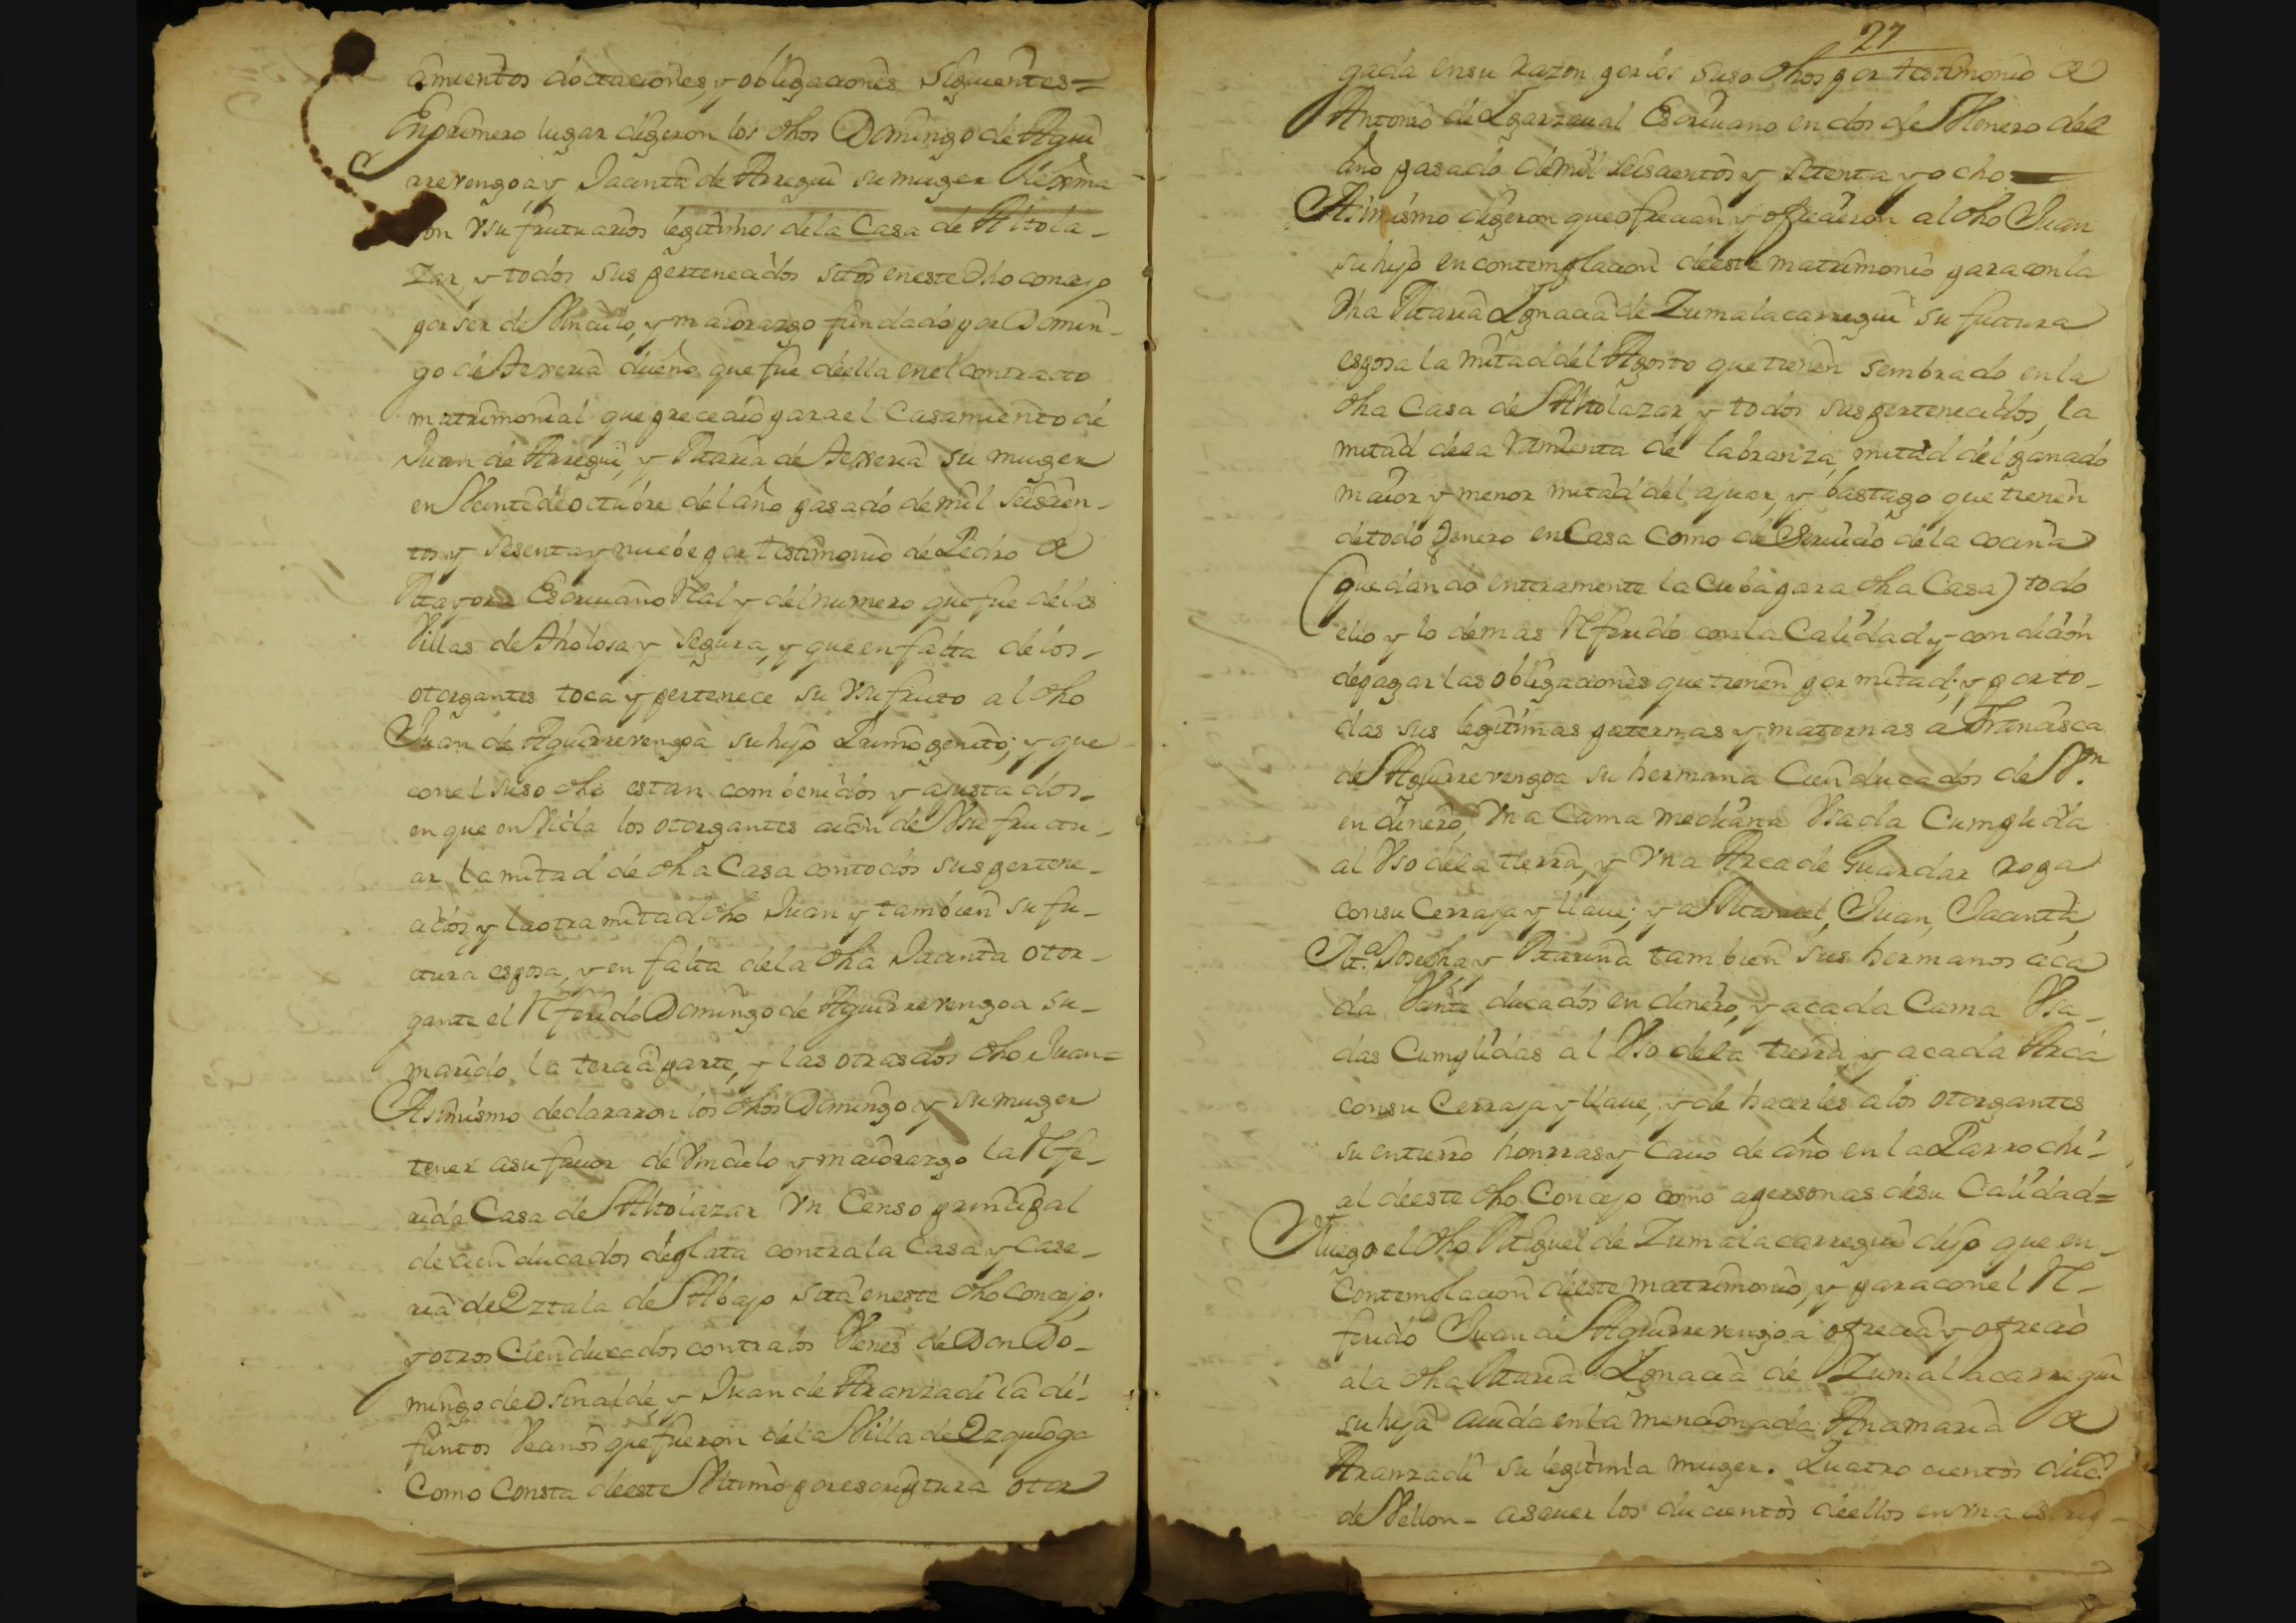 amientos doctaciones, y obligaciones siguientes=
En primero lugar digeron los dhos Domingo de Agui
rrevengoa, y Jacinta de Arregui su muger
son Vsufrutuarios legitimos de la Casa de Altola-
zar, y todos sus pertenecidos sitos en este dho concejo
por ser de Vinculo, y maiorazgo fundado por Domin-
go de Aerreria dueño que fue de ella en el contracto
matrimonial que precedio para el Casamiento de
Juan de Arregui, y Maria de Aerreria su muger
en Veinte de octubre del año pasado de mil seiscien-
tos y sesenta y nuebe por testimonio de Pedro de
Mayora Escriuano Rl y del numero que fue de las
Villas de Atholosa y Segura, y que en falta de los-
otorgantes toca y pertenece su Vsufruto al dho
Juan de Aguirrevengoa su hijo Primogenito; y que
con el suso dho estan combenidos y ajustados-
en que en Vida los otorgantes aian de Vsufructu-
ar la mitad de dha Casa con todos sus pertene-
cidos, y la otra mitad dho Juan y tambien su fu-
ctura esposa, y en falta de la dha Jacinta otor-
gante el Referido Domingo de Aguirrevengoa su-
marido, la tercia parte, y las otras dos dho Juan=
Asimismo declararon los dhos Domingo y su muger
tener a su fauor de Vinculo y maiorazgo la Refe-
rida Casa de Altolazar Vn Censo principal
de cien ducados de plata contra la Casa y Case-
ria de Oztala de Abajo sita en este dho concejo;
y otros Cien ducados contra los Vienes de Don Do-
mingo de Osinalde, y Juan de Aranzadi ia di-
funtos Vecinos que fueron de la Villa de Ezquioga
Como Consta de este Vltimo por escriptura otor
27
gada en su razon por los suso dhos por testimonio de
Antonio de Lgarzaual Escriuano en dos de Henero del
año pasado de mil seiscientos y setenta y ocho
Asimismo digeron que ofrecian y ofrecieron al dho Juan
su hijo en contemplacion de este matrimonio para con la
dha Maria Ignacia de Zumalacarregui su fuctura
esposa la mitad del Agosto que tienen sembrado en la
dha Casa de Altolazar, y todos sus pertenecidos, la
mitad de la ramienta de labranza, mitad del ganado
maior y menor mitad del ajuar, y bastago que tienen
de todo genero en Casa Como de Seruicio de la cocina
(quedando enteramente la Cuba para dha Casa) todo
ello y lo demas Referido con la Calidad y condicion
de pagar las obligaciones que tienen por mitad; y por to-
das sus legitimas paternas y maternas a Francisca
de Aguirrevengoa su hermana Cien ducados de Vn
en dinero, Vna Cama mediana Vsada Cumplida
al Vso de la tierra, y Vna Arca de Guardar ropa
con su Cerraja y llaue; y a Manuel, Juan, Jacinta,
Ma Josepha y Marina tambien sus hermanos a ca
da Veinte ducados en dinero, y a cada Cama Vsa-
das Cumplidas al Vso de la tierra, y a cada Arca
con su Cerraja y llaue, y de hacerles a los otorgantes
su entierro honrras y Cauo de año en la Parrochi-
al de este dho Concejo como a personas de su Calidad=
Luego el dho Miguel de Zumalacarregui dijo que en-
Contemplacion de este matrimonio, y para con el Re-
ferido Juan de Aguirrevengoa ofrecia y ofrecio
a la dha Maria Ignacia de Zumalacarregui
su hija auida en la mencionada Ana maria de
Aranzadi su legitima muger. Quatro cientos ducs
de Vellon- a sauer los ducientos de ellos en vna